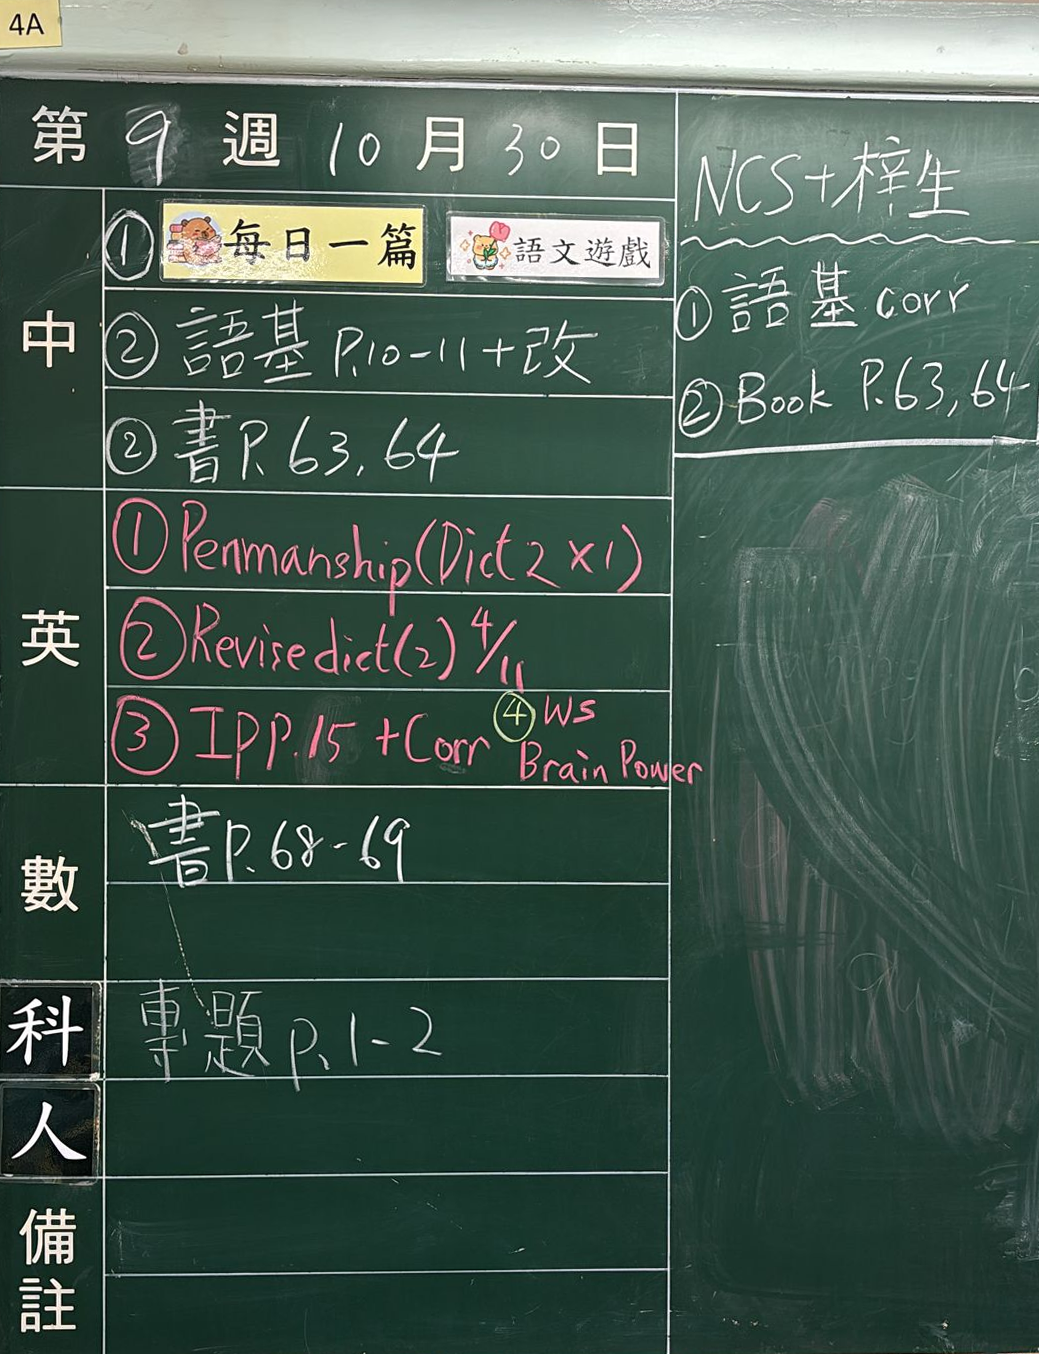 4A
第 9 週 10 月 30 日
中
① 每日一篇 語文遊戲
② 語基 P.10-11+改
② 書P. 63, 64
英
① Penmanship(Dict 2 x1)
② Revise dict(2) 4/11
③ IP P.15 +Corr ④ WS Brain Power
數
書P.68-69
科
專題 p.1-2
人
備註
NCS+梓生
① 語基 corr
② Book P.63, 64